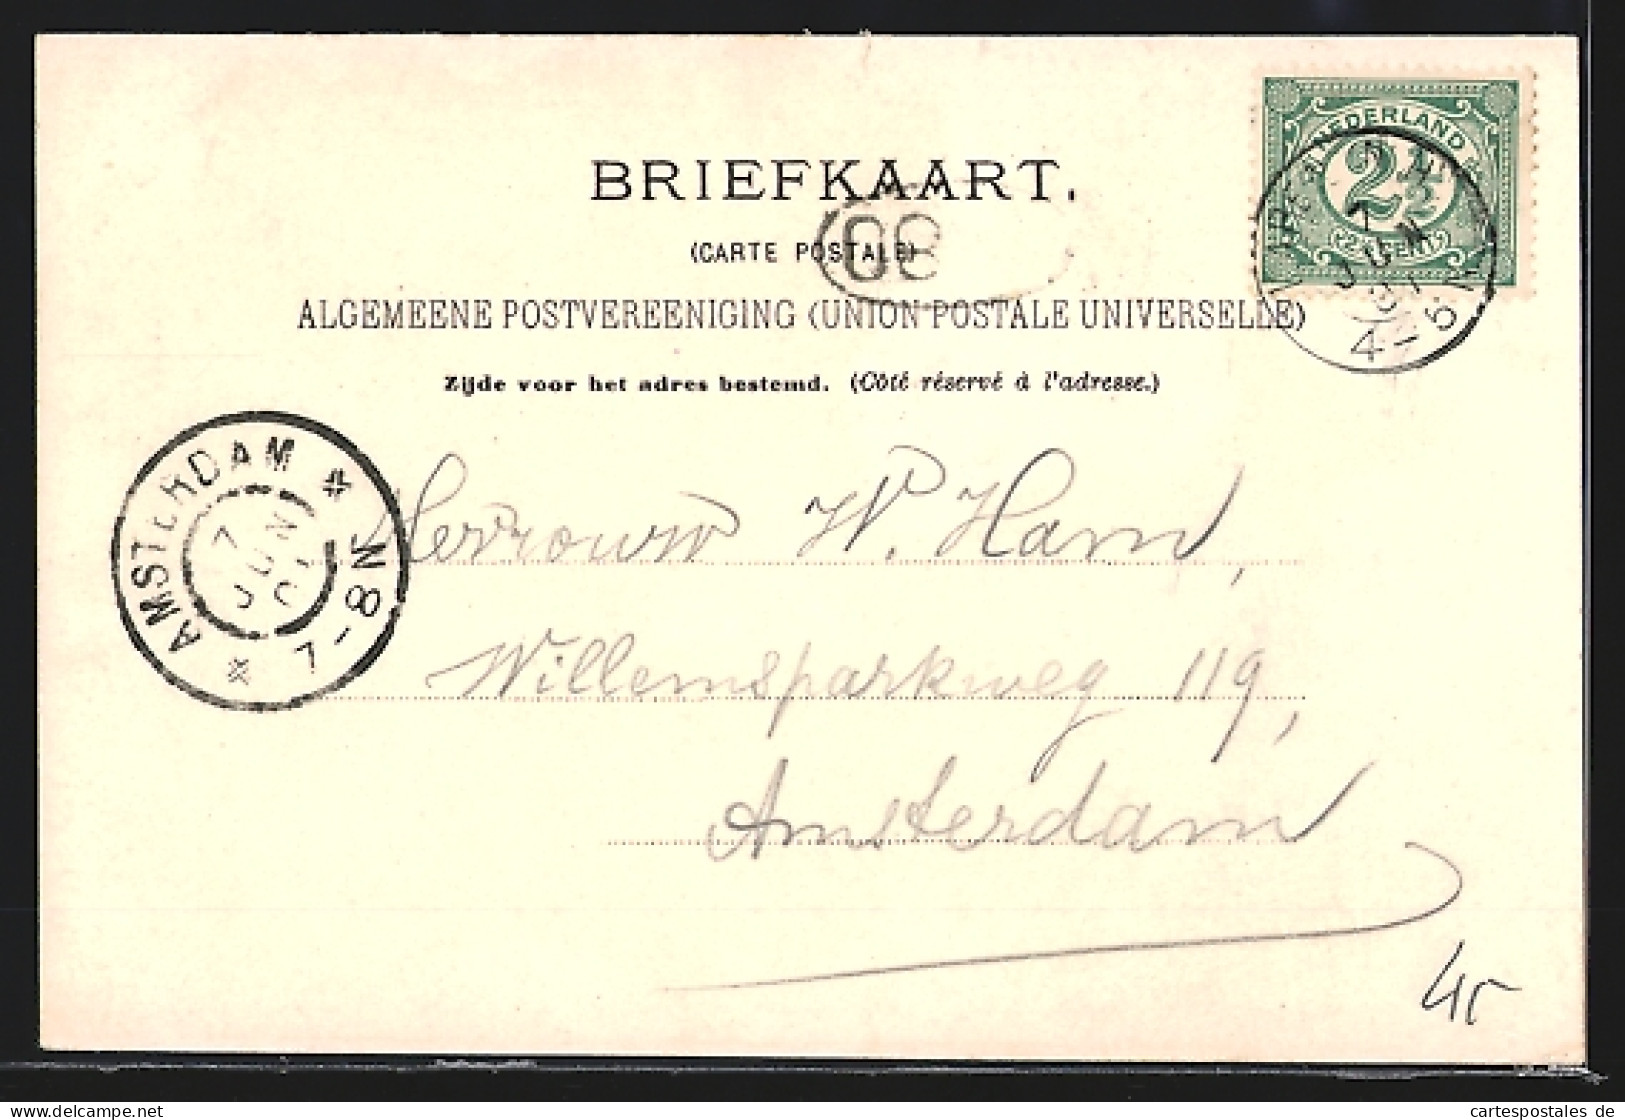 BRIEFKAART.
(CARTE POSTALE)
ALGEMEENE POSTVEREENIGING (UNION POSTALE UNIVERSELLE)
Zijde voor het adres bestemd. (Côté réservé à l'adresse.)
NEDERLAND
2½
(2½ CENT)
7
JUN
4-5N
80
AMSTERDAM
7
JUN
01
7-8N
W. Ham,
Willemsparkweg 119,
Amsterdam
45
cartespostales de
www.delcampe.net